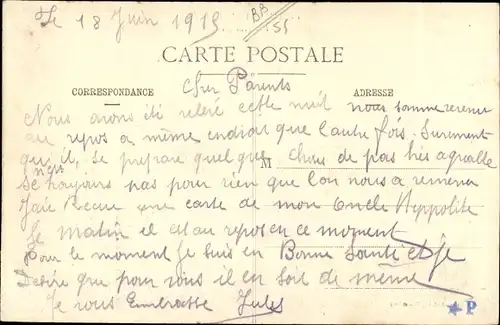 Le 18 Juin 1915
BB
55
CARTE POSTALE
CORRESPONDANCE
ADRESSE
Cher Parents
Nous avons éti relevé cette nuit nous somme revenu
au repos a même endroit que l'autre fois. Surment
qu'il, se prepare quelque chose de pas très agréalle
M
Se pas pour rien que l'on nous a remener
J'ai Recue une carte de mon Oncle Hyppolite
Le Matin il et au repos en ce moment
Pour le moment Je suis en Bonne Santé et Je
Desire que pour vous il en soit de même
Je vous Embrasse Jules
P